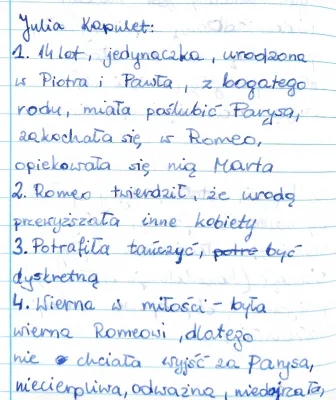 Julia Kapulet:
1. 14 lat, jedynaczka, urodzona
w Piotra i Pawła, z bogatego
rodu, miała poślubić Parysa,
zakochała się w Romeo,
opiekowała się nią Marta
2. Romeo twierdził, że urodą
przewyższała inne kobiety
3. Potrafiła tańczyć, potra być
dyskretną
4. Wierna w miłości - była
wierna Romeowi, dlatego
nie chciała wyjść za Parysa,
niecierpliwa, odważna, niedojrzała,